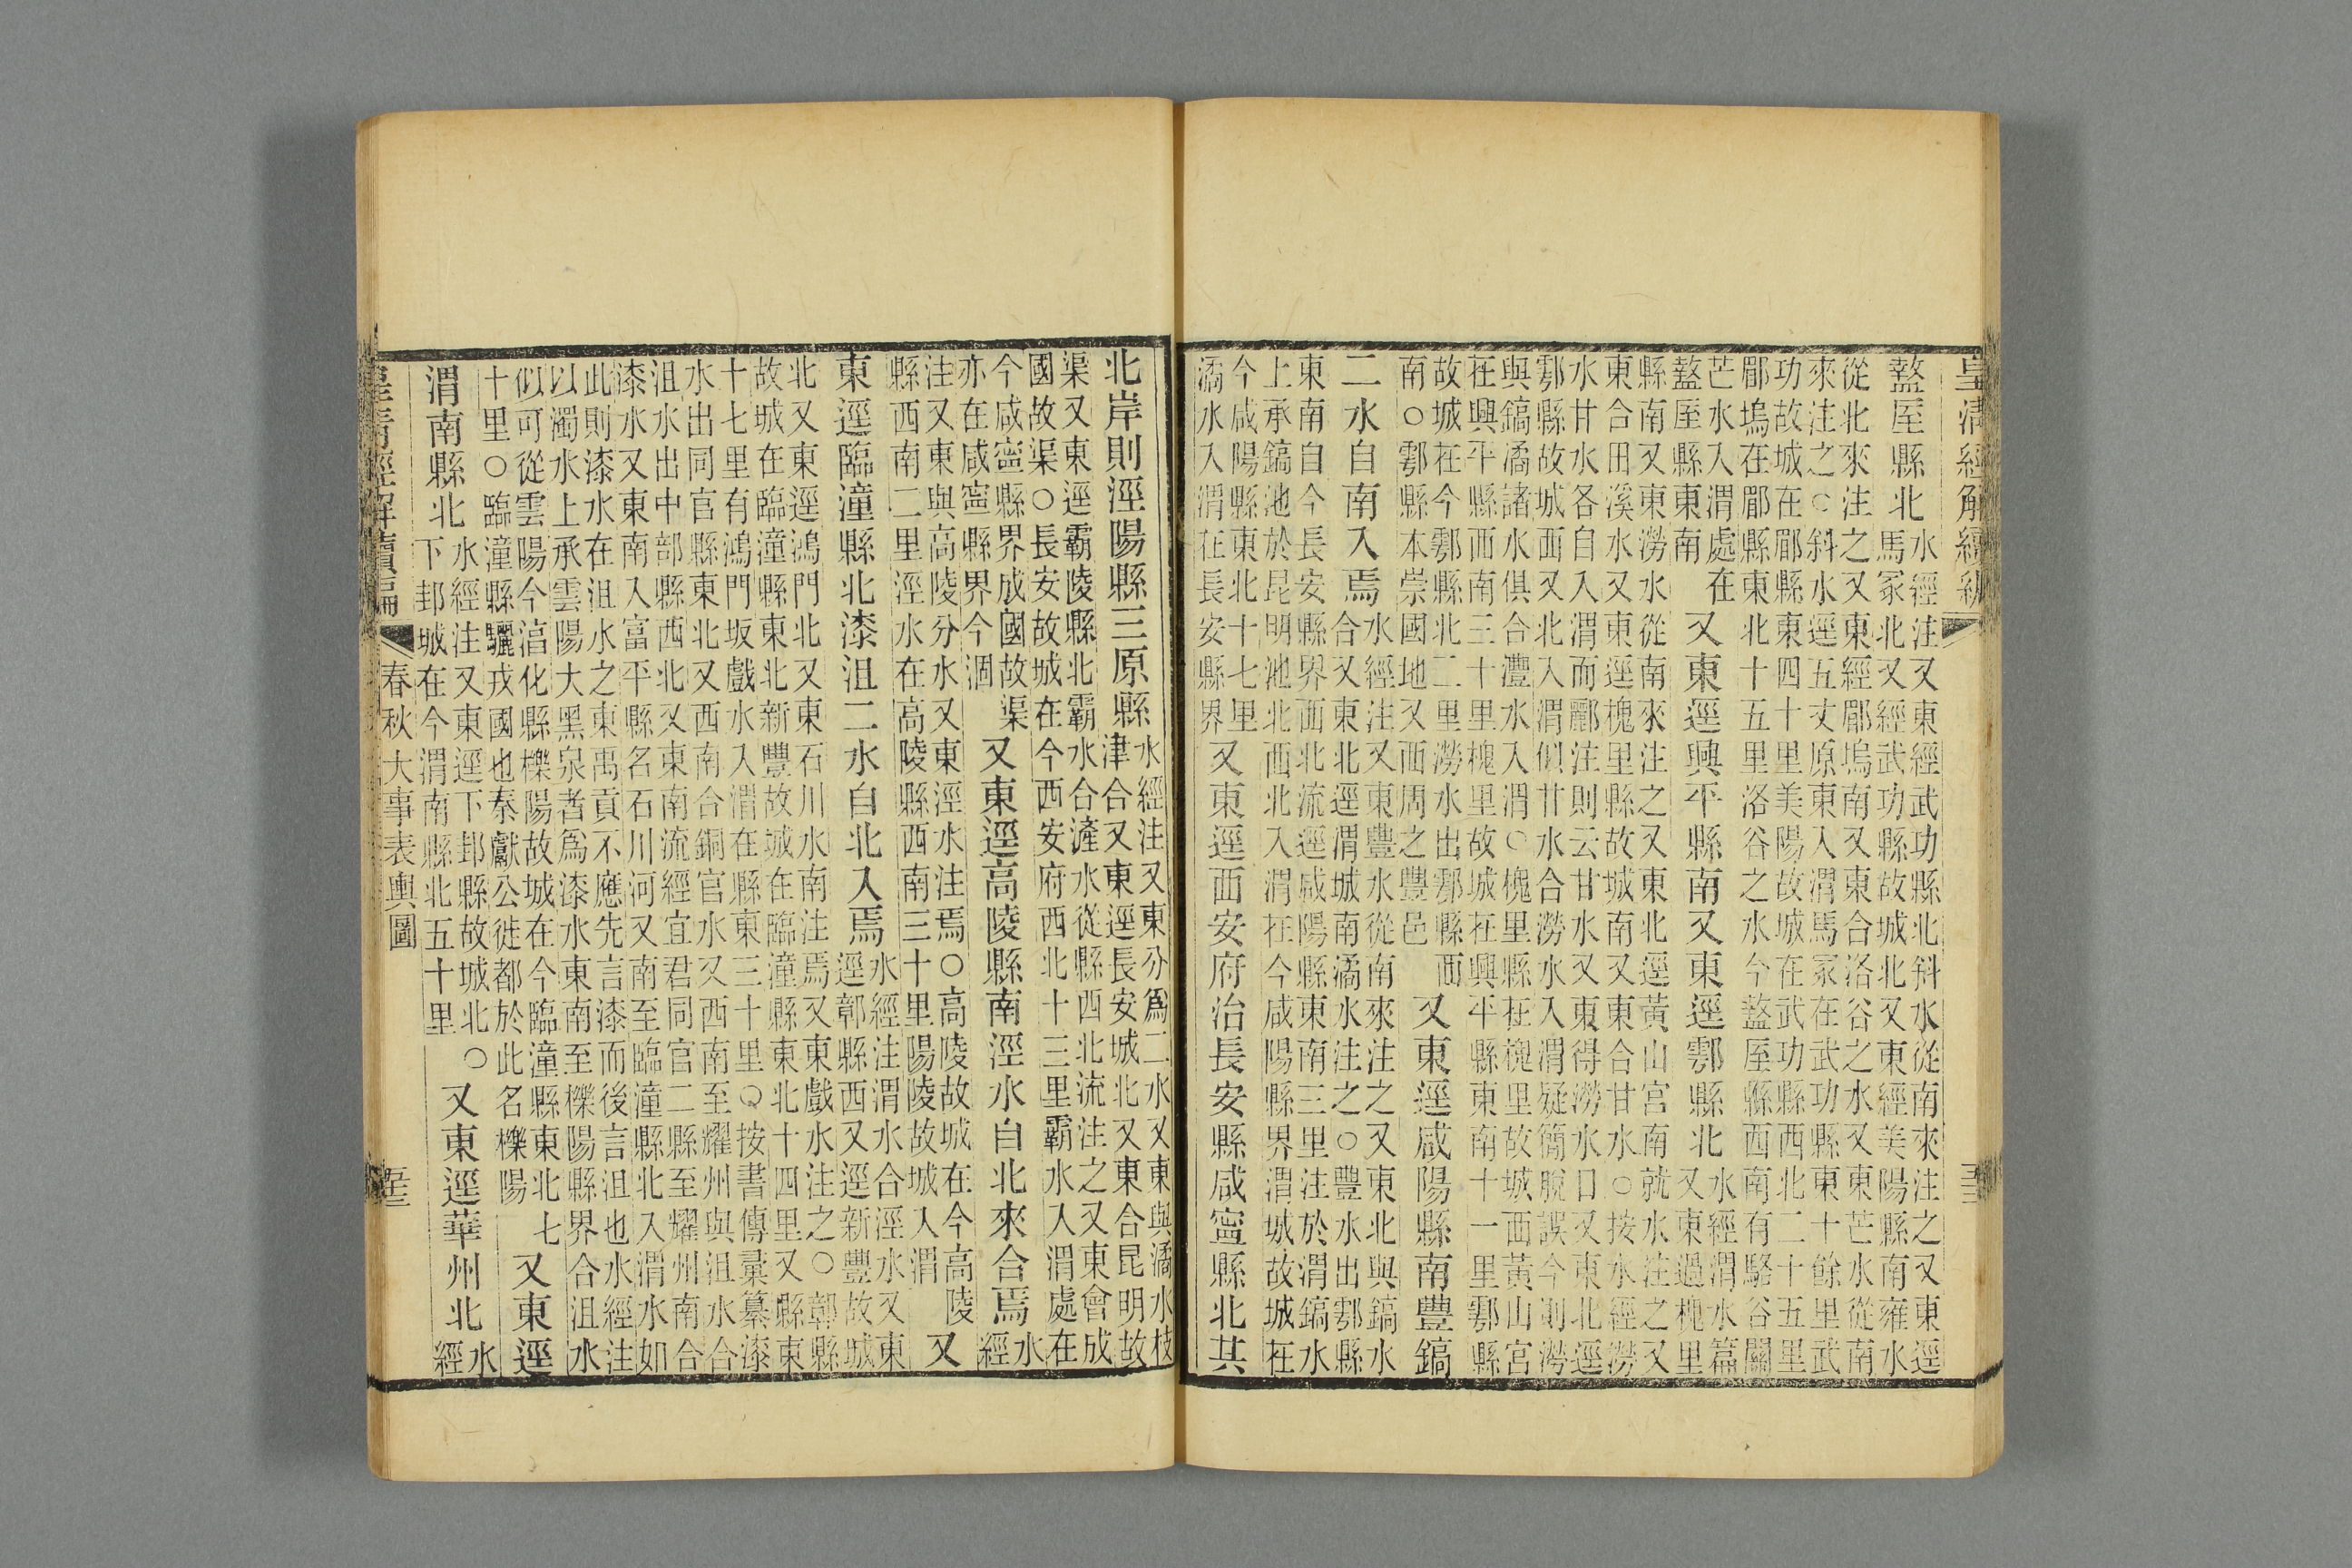 皇清經解續編
盩厔縣北水經注又東經武功縣北斜水從南來注之又東逕馬冢北又經武功縣故城北又東經美陽縣南雍水
從北來注之又東經郿塢南又東合洛谷之水又東芒水從南來注之○斜水逕五丈原東入渭馬冢在武功縣東十餘里武
功故城在郿縣東四十里美陽故城在武功縣西北二十五里郿塢在郿縣東北十五里洛谷之水今盩厔縣西南有駱谷關
芒水入渭處在盩厔縣東南又東逕興平縣南又東逕鄠縣北水經渭水篇又東過槐里
縣南又東澇水從南來注之又東北逕黃山宮南就水注之又東合田溪水又東逕槐里縣故城南又東合甘水○按水經澇
水甘水各自入渭而酈注則云甘水又東得澇水口又東北逕鄠縣故城西又北入渭似甘水合澇水入渭疑簡脫誤今則澇
與鎬潏諸水俱合灃水入渭○槐里縣在槐里故城西黃山宮在興平縣西南三十里槐里故城在興平縣東南十一里鄠縣
故城在今鄠縣北二里澇水出鄠縣西南○鄠縣本崇國地又西周之豐邑又東逕咸陽縣南豐鎬
二水自南入焉水經注又東豐水從南來注之又東北與鎬水合又東北逕渭城南潏水注之○豐水出鄠縣
東南自今長安縣界西北流逕咸陽縣東南三里注於渭鎬水上承鎬池於昆明池北西北入渭在今咸陽縣界渭城故城在
今咸陽縣東北十七里潏水入渭在長安縣界又東逕西安府治長安縣咸寧縣北其
北岸則涇陽縣三原縣水經注又東分爲二水又東與潏水枝津合又東逕長安城北又東合昆明故
渠又東逕霸陵縣北霸水合滻水從縣西北流注之又東會成國故渠○長安故城在今西安府西北十三里霸水入渭處在
今咸寧縣界成國故渠亦在咸寧縣界今涸又東逕高陵縣南涇水自北來合焉水經
注又東與高陵分水又東涇水注焉○高陵故城在今高陵縣西南二里涇水在高陵縣西南三十里陽陵故城入渭又
東逕臨潼縣北漆沮二水自北入焉水經注渭水合涇水又東逕鄣縣西又逕新豐故城
北又東逕鴻門北又東石川水南注焉又東戲水注之○鄣縣故城在臨潼縣東北新豐故城在臨潼縣東北十四里又縣東
十七里有鴻門坂戲水入渭在縣東三十里○按書傳彙纂漆水出同官縣東北又西南合銅官水又西南至耀州與沮水合
沮水出中部縣西北又東南流經宜君同官二縣至耀州南合漆水又東南入富平縣名石川河又南至臨潼縣北入渭水如
此則漆水在沮水之東禹貢不應先言漆而後言沮也水經注以濁水上承雲陽大黑泉者爲漆水東南至櫟陽縣界合沮水
似可從雲陽今化縣櫟陽故城在今臨潼縣東北七十里○臨潼縣驪戎國也秦獻公徙都於此名櫟陽又東逕
渭南縣北水經注又東逕下邽縣故城北○下邽城在今渭南縣北五十里又東逕華州北水經
皇清經解續編 春秋大事表輿圖